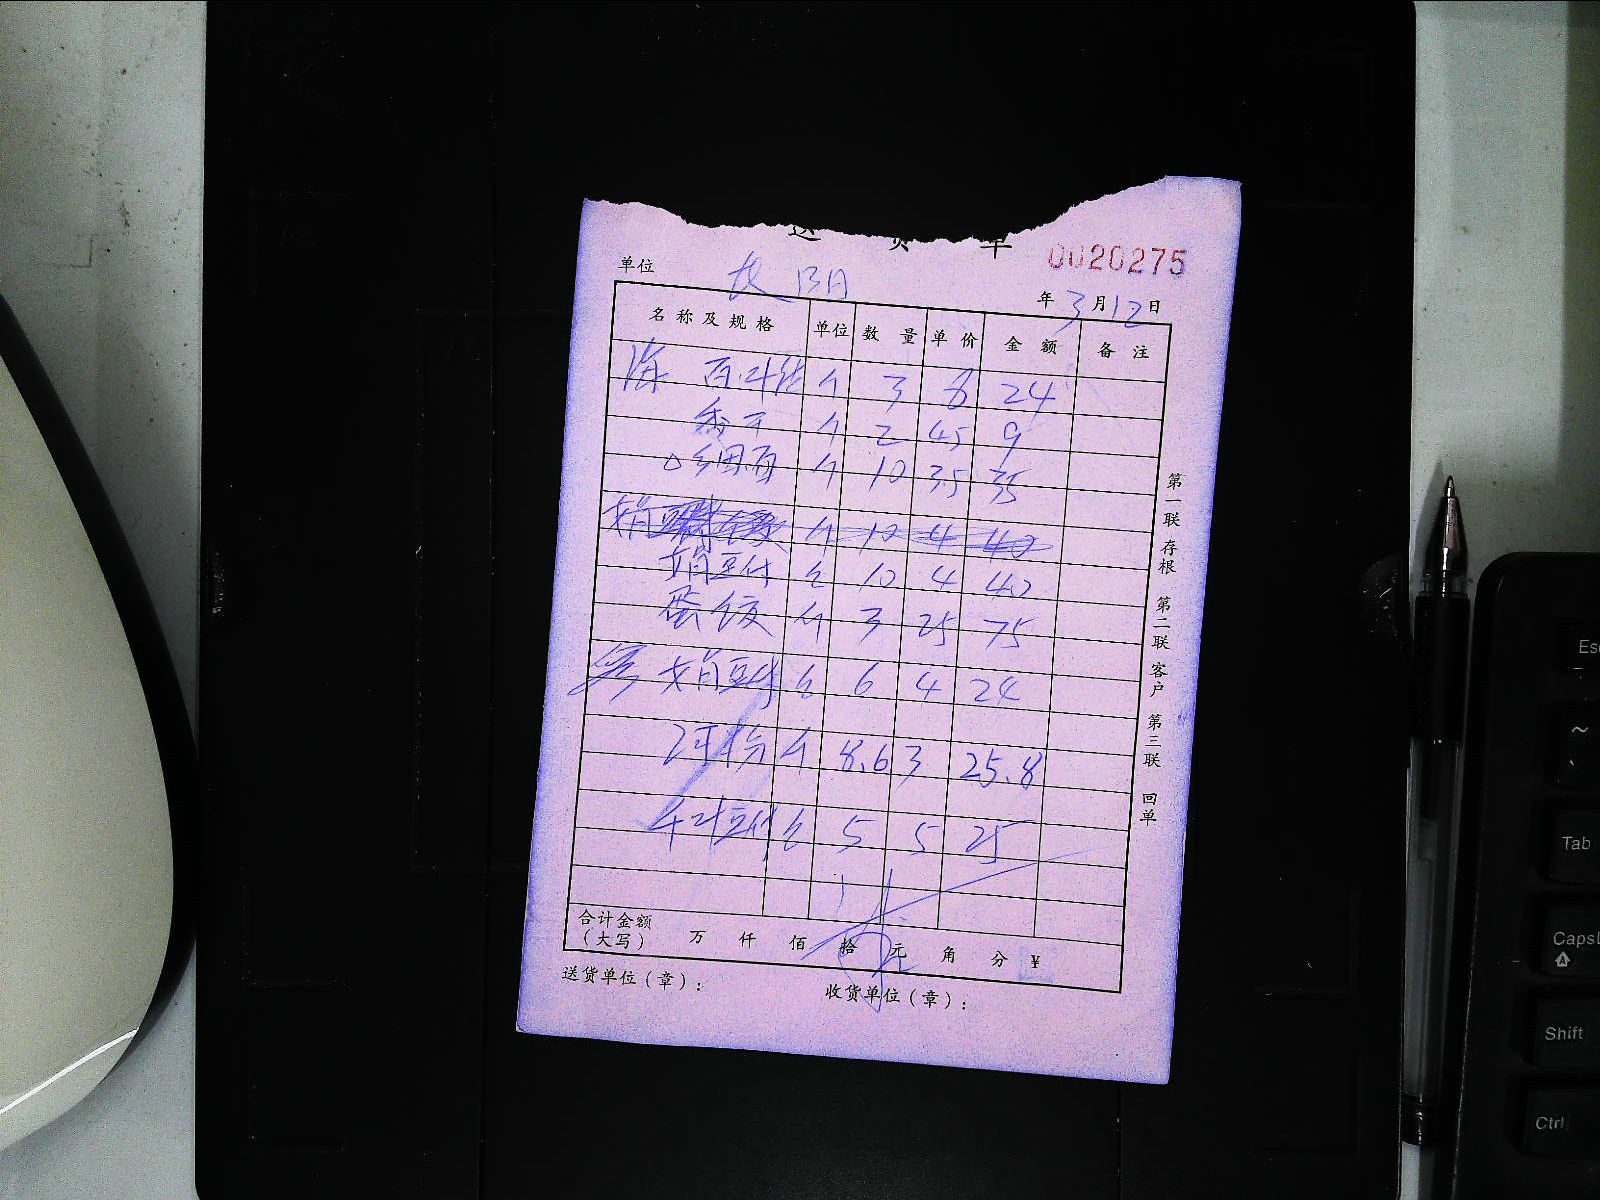 送 货 单
0020275
单位 长阳
年 3 月 12 日
名称及规格 单位 数量 单价 金额 备注
海 百叶结 个 3 8 24
香干 个 2 4.5 9
细百 个 10 3.5 35
个 10 4 40
娟豆付 仓 10 4 40
蛋饺 个 3 25 75
娟豆付 6 4 24
个 8.6 3 25.8
豆付 5 5 25
合计金额
(大写) 万 仟 佰 拾 元 角 分 ¥
送货单位(章): 收货单位(章):
第一联 存根 第二联 客户 第三联 回单
Esc
~
Tab
CapsL
A
Shift
Ctrl